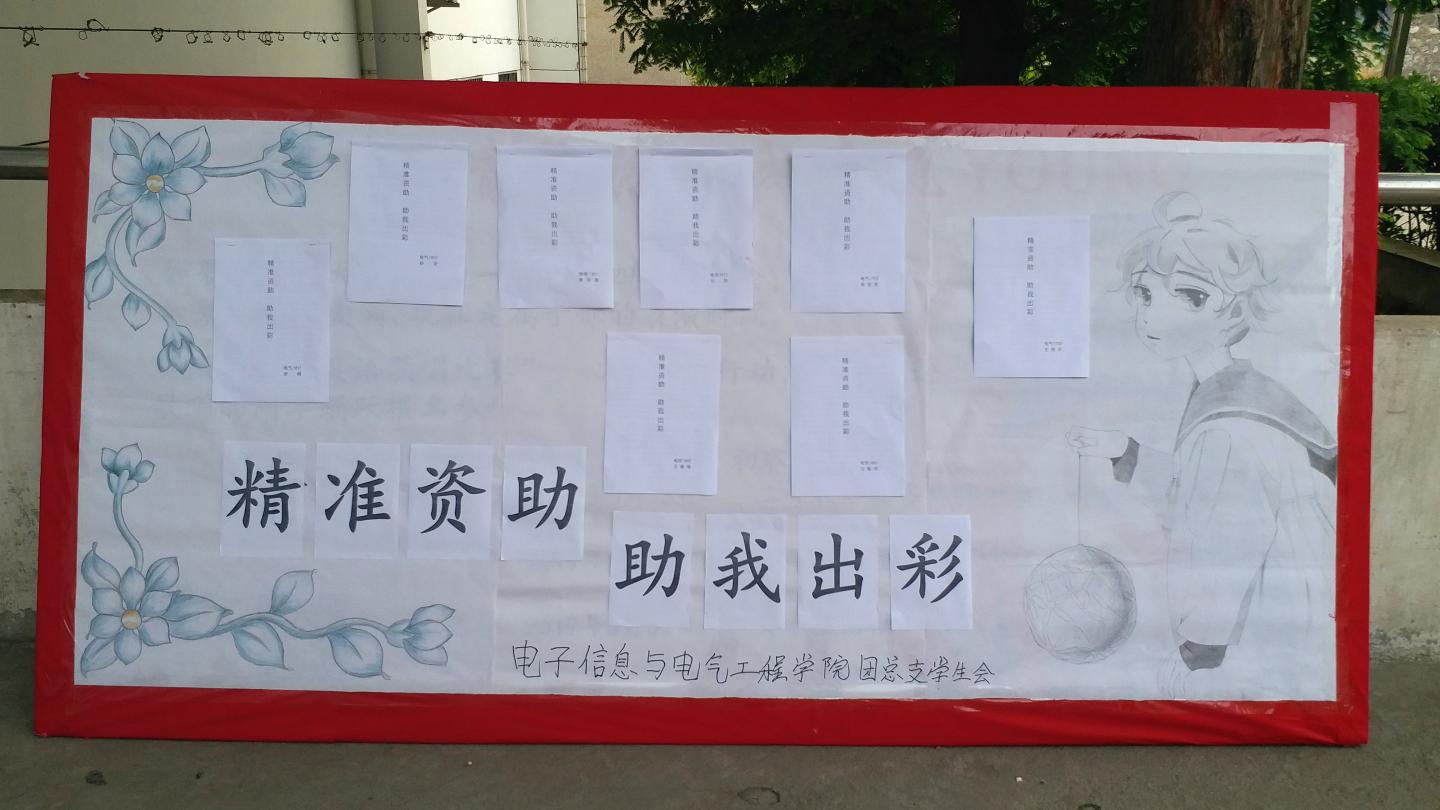 精准资助 助我出彩
精准资助 助我出彩
精准资助 助我出彩
精准资助 助我出彩
精准资助 助我出彩
精准资助 助我出彩
精准资助 助我出彩
精准资助 助我出彩
精准资助
助我出彩
电子信息与电气工程学院团总支学生会